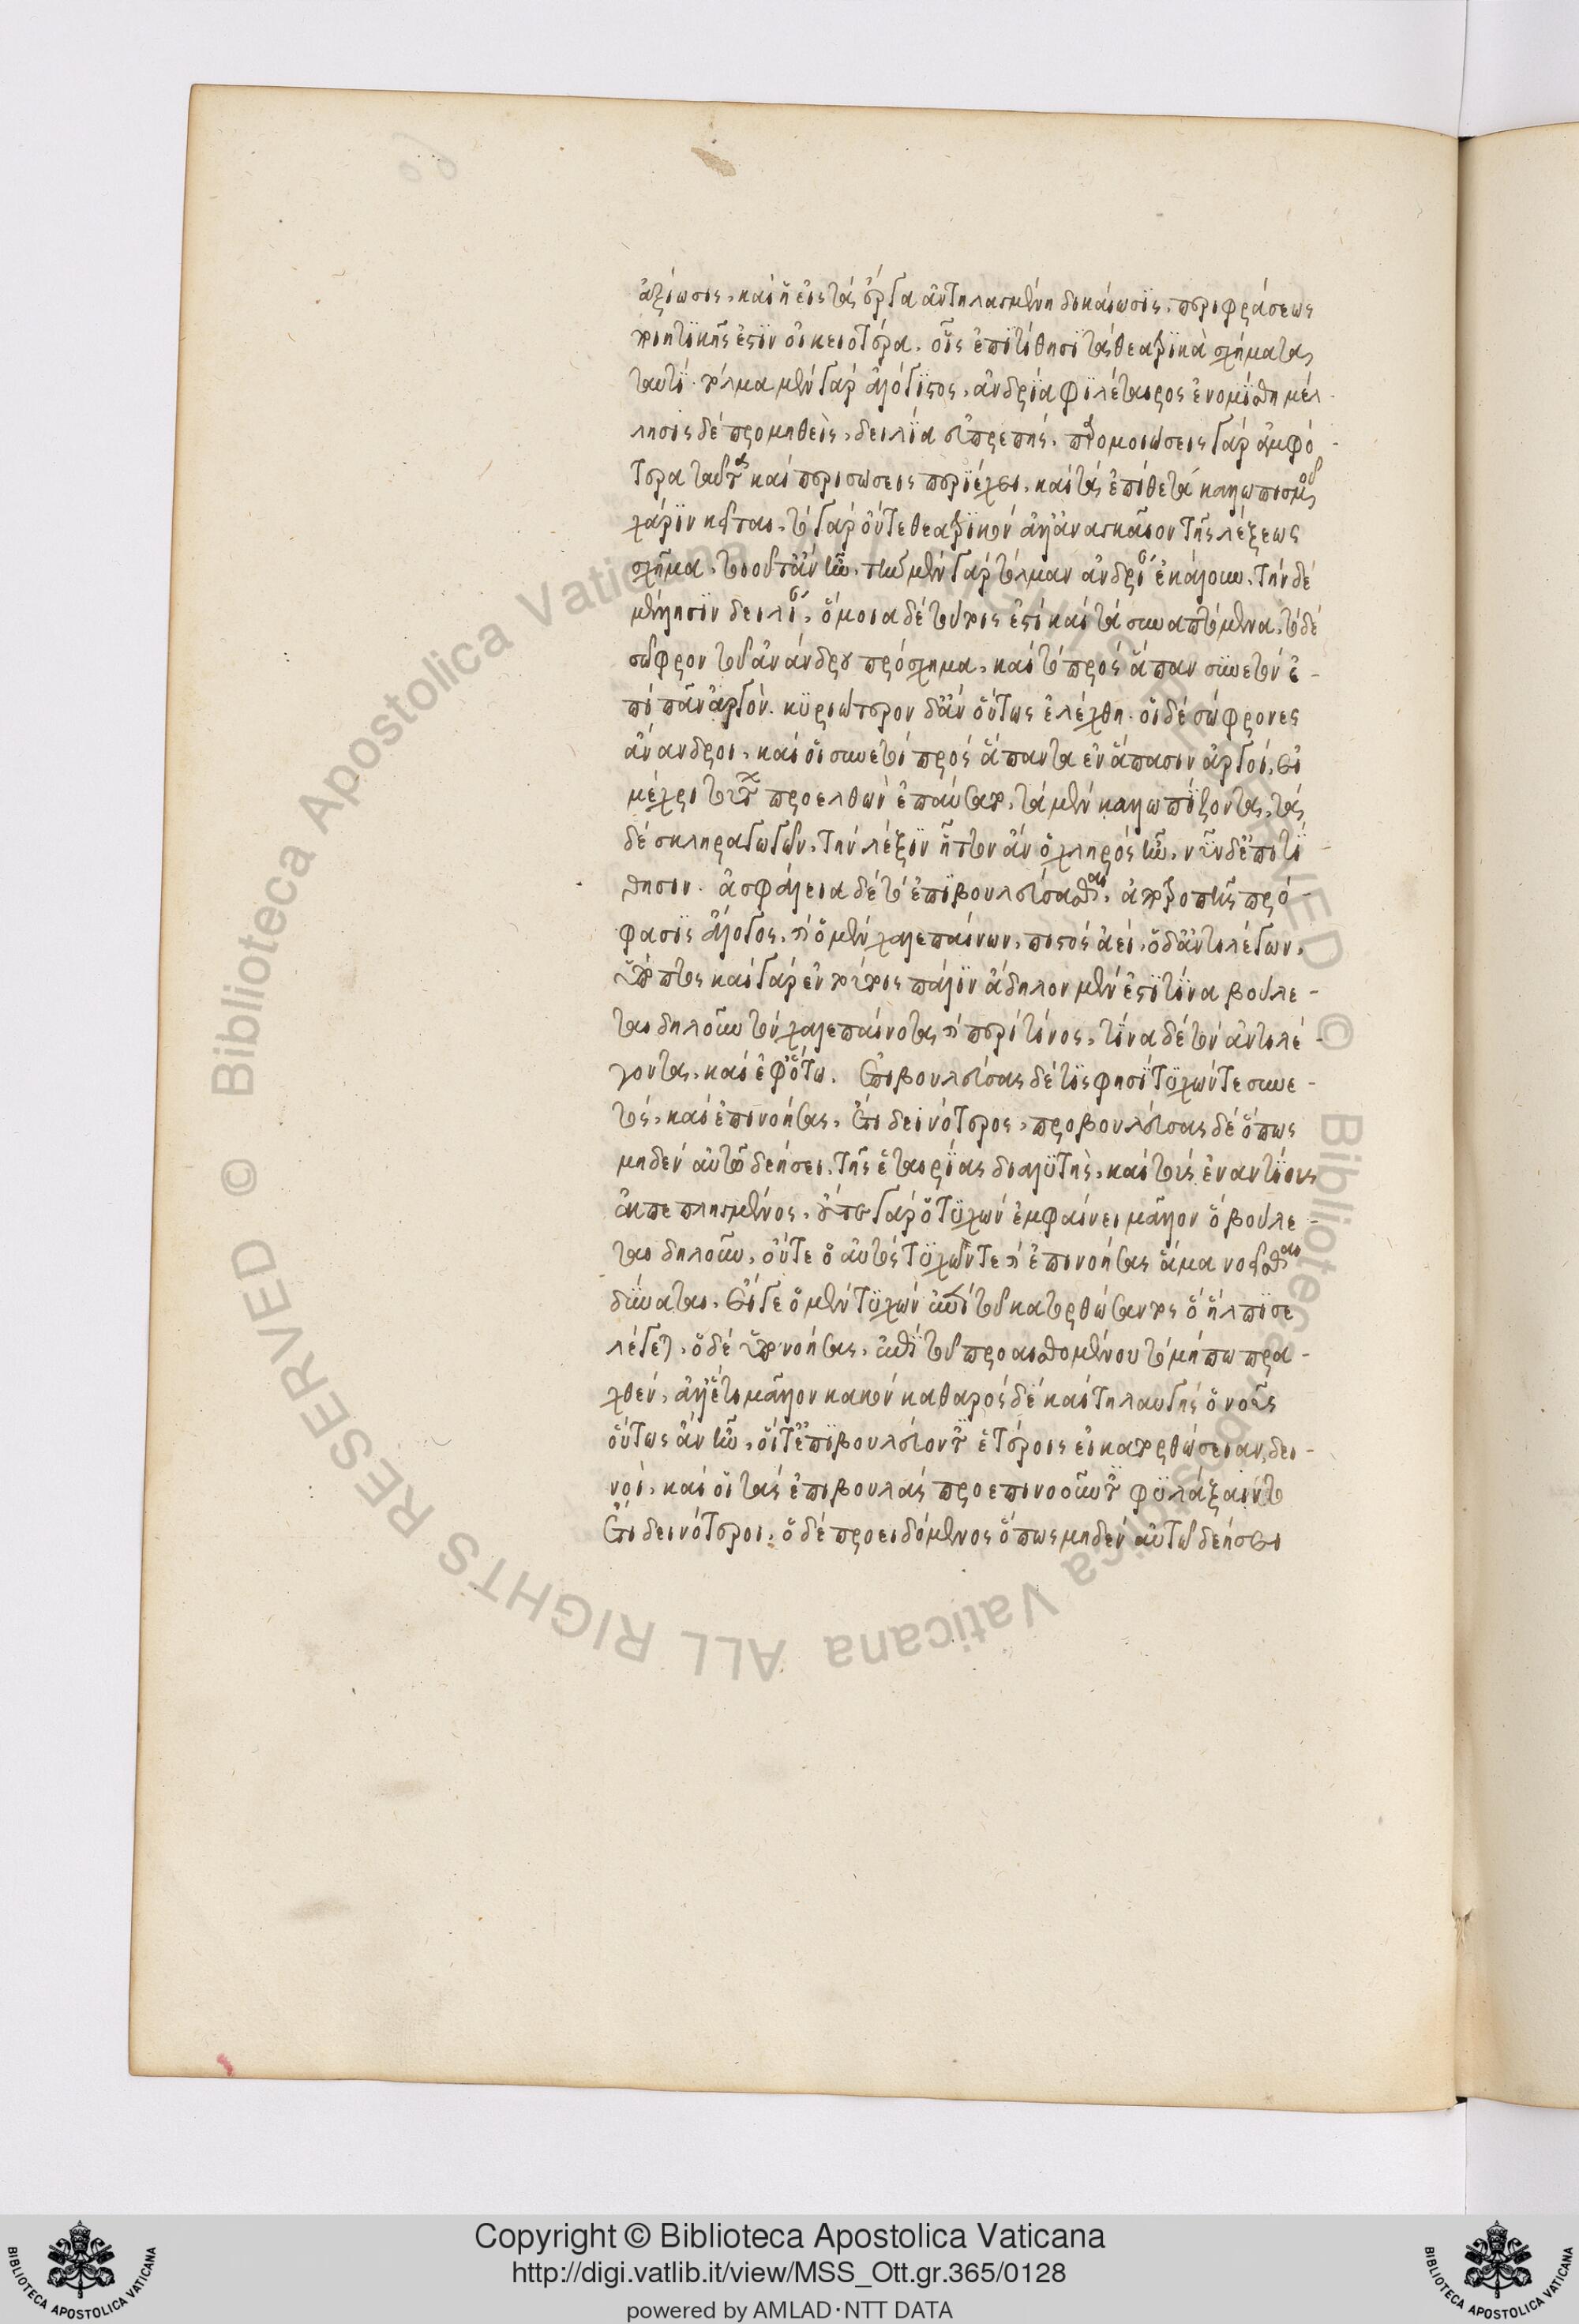 ἀξίωσις, καὶ ἡ εἰς τὰ ἔργα ἀντηλλαγμένη δικαίωσις, περιφράσεως
ποιητικῆς ἐστὶν οἰκειοτέρα. οἷς ἐπιτίθησι τὰ θεατρικὰ σχήματα
ταυτί. τόλμα μὲν γὰρ ἀλόγιστος, ἀνδρία φιλέταιρος ἐνομίσθη μέλ-
λησις δὲ προμηθεὶς, δειλία εὐπρεπής. παρομοιώσεις γὰρ ἀμφό-
τερα ταῦτα καὶ παρισώσεις περιέχει, καὶ τὰ ἐπίθετα καλλωπισμοῦ
χάριν κεῖται. τὸ γὰρ οὔτε θεατρικὸν ἀλλ' ἀναγκαῖον τῆς λέξεως
σχῆμα, τοιοῦτ' ἂν ἦν. τὴν μὲν γὰρ τόλμαν ἀνδρίαν ἐκάλουν. τὴν δὲ
μέλλησιν δειλίαν, ὅμοια δὲ τούτοις ἐστὶ καὶ τὰ συναπτόμενα, τὸ δὲ
σῶφρον τοῦ ἀνάνδρου πρόσχημα, καὶ τὸ πρὸς ἅπαν συνετὸν ἐ-
πὶ πᾶν ἀργόν. κυριώτερον δ' ἂν οὕτως ἐλέχθη. οἱ δὲ σώφρονες
ἄνανδροι, καὶ οἱ συνετοὶ πρὸς ἅπαντα ἐν ἅπασιν ἀργοί, εἰ
μέχρι τούτων προελθὼν ἐπαύσατο, τὰ μὲν καλλωπίζοντα, τὰ
δὲ σκληραγωγῶν, τὴν λέξιν ἧττον ἂν ὀχληρὸς ἦν, νῦν δ' ἐπιτί-
θησιν. ἀσφάλεια δὲ τὸ ἐπιβουλεύσασθαι, ἀποτροπῆς πρό-
φασις ἄλογος, καὶ ὁ μὲν χαλεπαίνων, πιστὸς ἀεί, ὁ δ' ἀντιλέγων,
ὕποπτος καὶ γὰρ ἐν τούτοις πάλιν ἄδηλον μὲν ἐστὶ τίνα βούλε-
ται δηλοῦν τὸν χαλεπαίνοντα καὶ περὶ τίνος, τίνα δὲ τὸν ἀντιλέ-
γοντα, καὶ ἐφ' ὅτω. ἐπιβουλεύσας δέ τις φησὶ τυχών τε συνε-
τὸς, καὶ ἐπινοήσας, ἔτι δεινότερος, προβουλεύσας δὲ ὅπως
μηδὲν αὐτῶ δεήσει, τῆς ἑταιρίας διαλυτὴς, καὶ τοὺς ἐναντίους
ἐκπεπληγμένος, οὔτε γὰρ ὁ τυχὼν ἐμφαίνει μᾶλλον ὃ βούλε-
ται δηλοῦν, οὔτε ὁ αὐτὸς τυχών τε καὶ ἐπινοήσας ἅμα νοεῖσθαι
δύναται, εἴγε ὁ μὲν τυχὼν ἀντὶ τοῦ κατορθώσαντος ὃ ἤλπισε
λέγεται, ὁ δὲ ὑπονοήσας, ἀντὶ τοῦ προαισθομένου τὸ μήπω πρα-
χθὲν, ἀλλ' ἔτι μᾶλλον κακὸν καθαρὸς δὲ καὶ τηλαυγὴς ὁ νοῦς
οὕτως ἂν ἦν, οἵ τ' ἐπιβουλεύοντες ἑτέροις εἰ κατορθώσειαν, δει-
νοί, καὶ οἱ τὰς ἐπιβουλὰς προεπινοοῦντες φυλάξαιντο
ἔτι δεινότεροι, ὁ δὲ προειδόμενος ὅπως μηδὲν αὐτῶ δεήσει
Copyright © Biblioteca Apostolica Vaticana
http://digi.vatlib.it/view/MSS_Ott.gr.365/0128
powered by AMLAD·NTT DATA